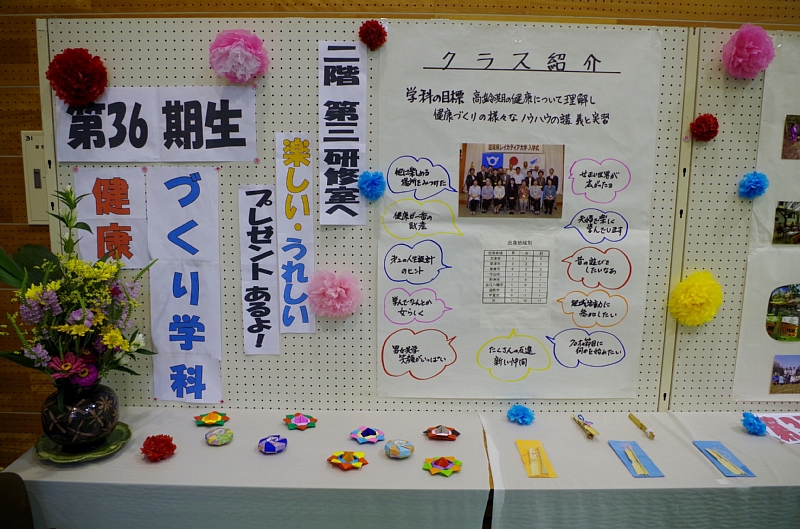 第36期生
健康
づくり学科
プレゼントあるよ！
楽しい・うれしい
二階 第三研修室へ
クラス紹介
学科の目標 高齢期の健康について理解し
健康づくりの様々なノウハウの講義と実習
滋賀県レイカディア大学 入学式
他に楽しめる
場所をみつけた
健康が一番の
財産
第二の人生設計
のヒント
学んでなんとか
女らしく
男女共学
笑顔がいっぱい
たくさんの友達
新しい仲間
せまい世界が
広がった
夫婦で楽しく
学んでいます
昔の遊び
したいなあ
地域活動に
参加したい
何かを始めたい
出身地域別
31